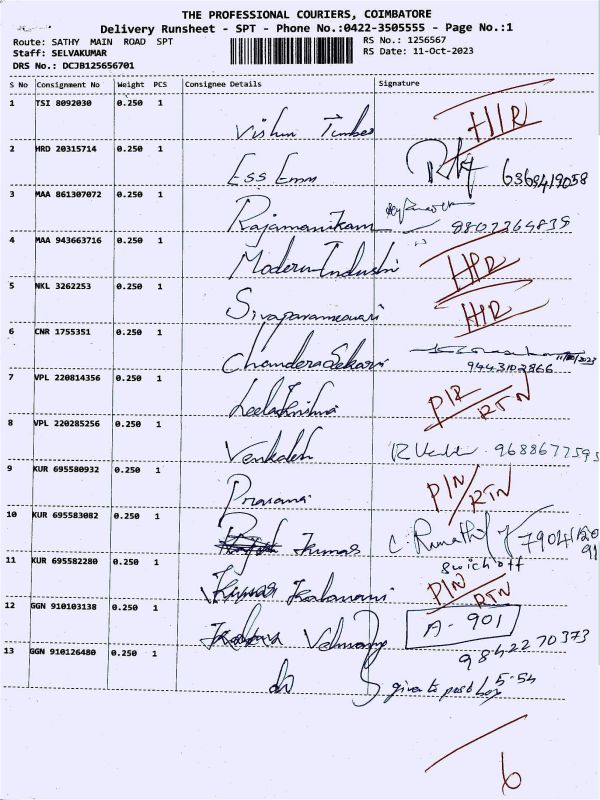 THE PROFESSIONAL COURIERS, COIMBATORE
Delivery Runsheet - SPT - Phone No.:0422-3505555 - Page No.:1
Route: SATHY MAIN ROAD SPT RS No.: 1256567
Staff: SELVAKUMAR RS Date: 11-Oct-2023
DRS No.: DCJB125656701
S No Consignment No Weight PCS Consignee Details Signature
1 TSI 8092030 0.250 1
Vishnu Timber
2 HRD 20315714 0.250 1
Ess Emm 6369419058
3 MAA 861307072 0.250 1
Rajamanikam
4 MAA 943663716 0.250 1
Modern Industri
5 NKL 3262253 0.250 1
Sivaparameswari
6 CNR 1755351 0.250 1
Chandera Sekari 9443102866
7 VPL 220814356 0.250 1
Leela Krishna RTN
8 VPL 220285256 0.250 1
Venkatesh
9 KUR 695580932 0.250 1
Prasana P/N/RTN
10 KUR 695583082 0.250 1
Kumar
11 KUR 695582280 0.250 1 Swich off
P/N RTN
12 GGN 910103138 0.250 1 A-901
9842270373
13 GGN 910126480 0.250 1
do give to post box 5-54
6